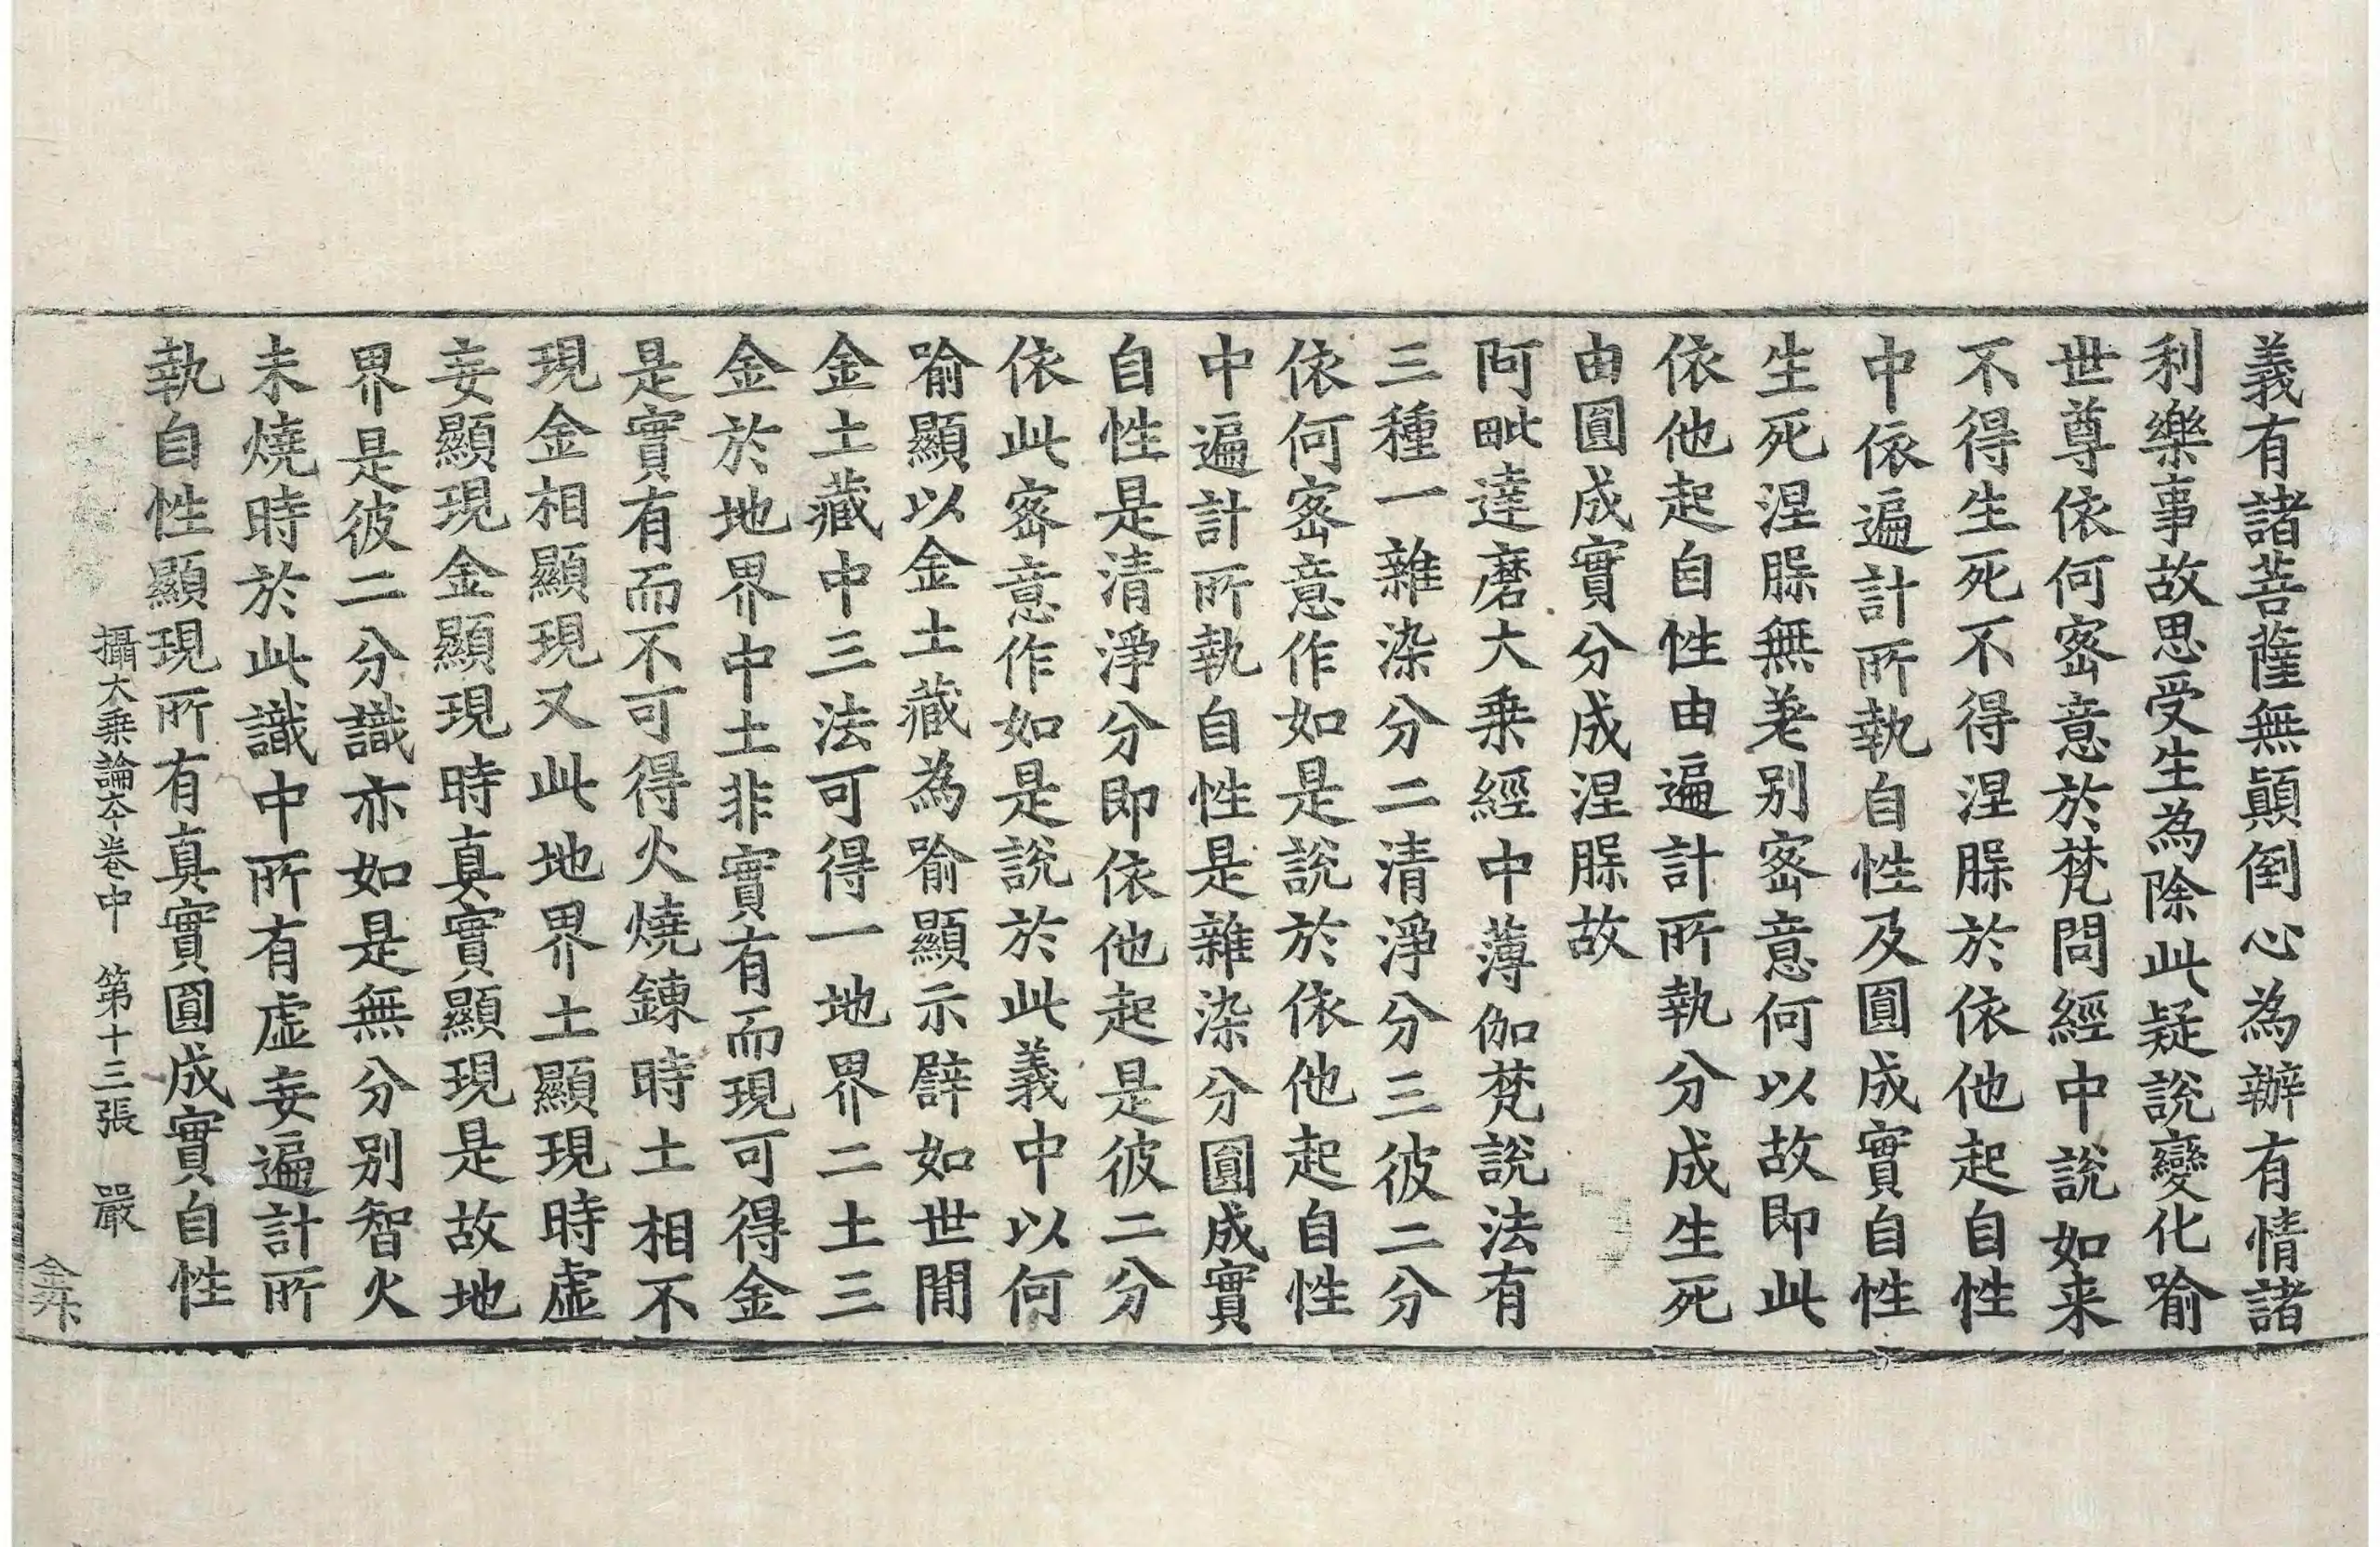 義有諸菩薩無顛倒心為辦有情諸
利樂事故思受生為除此疑說變化喻
世尊依何密意於梵問經中說如来
不得生死不得涅脲於依他起自性
中依遍計所執自性及圓成實自性
生死涅脲無差别密意何以故即此
依他起自性由遍計所執分成生死
由圓成實分成涅脲故
阿毗達磨大乗經中薄伽梵說法有
三種一雜染分二清淨分三彼二分
依何密意作如是說於依他起自性
中遍計所執自性是雜染分圓成實
自性是清淨分即依他起是彼二分
依此密意作如是說於此義中以何
喻顯以金土藏為喻顯示譬如世間
金土藏中三法可得一地界二土三
金於地界中土非實有而現可得金
是實有而不可得火燒鍊時土相不
現金相顯現又此地界土顯現時虛
妄顯現金顯現時真實顯現是故地
界是彼二分識亦如是無分别智火
未燒時於此識中所有虛妄遍計所
執自性顯現所有真實圓成實自性
攝大乗論夲卷中 第十三張 嚴